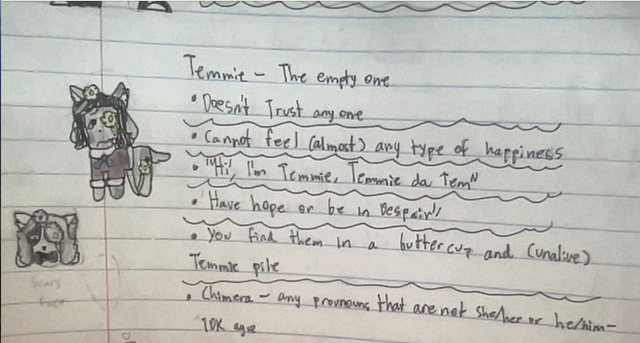 Temmie - The empty one
• Doesn't Trust any one
• Cannot feel (almost) any type of happiness
• "Hi, I'm Temmie, Temmie da Tem"
• "Have hope or be in Despair"
• You find them in a buttercup and (unalive)
Temmie pile
• Chimera - any pronouns that are not she/her or he/him-
IDK age
Scars